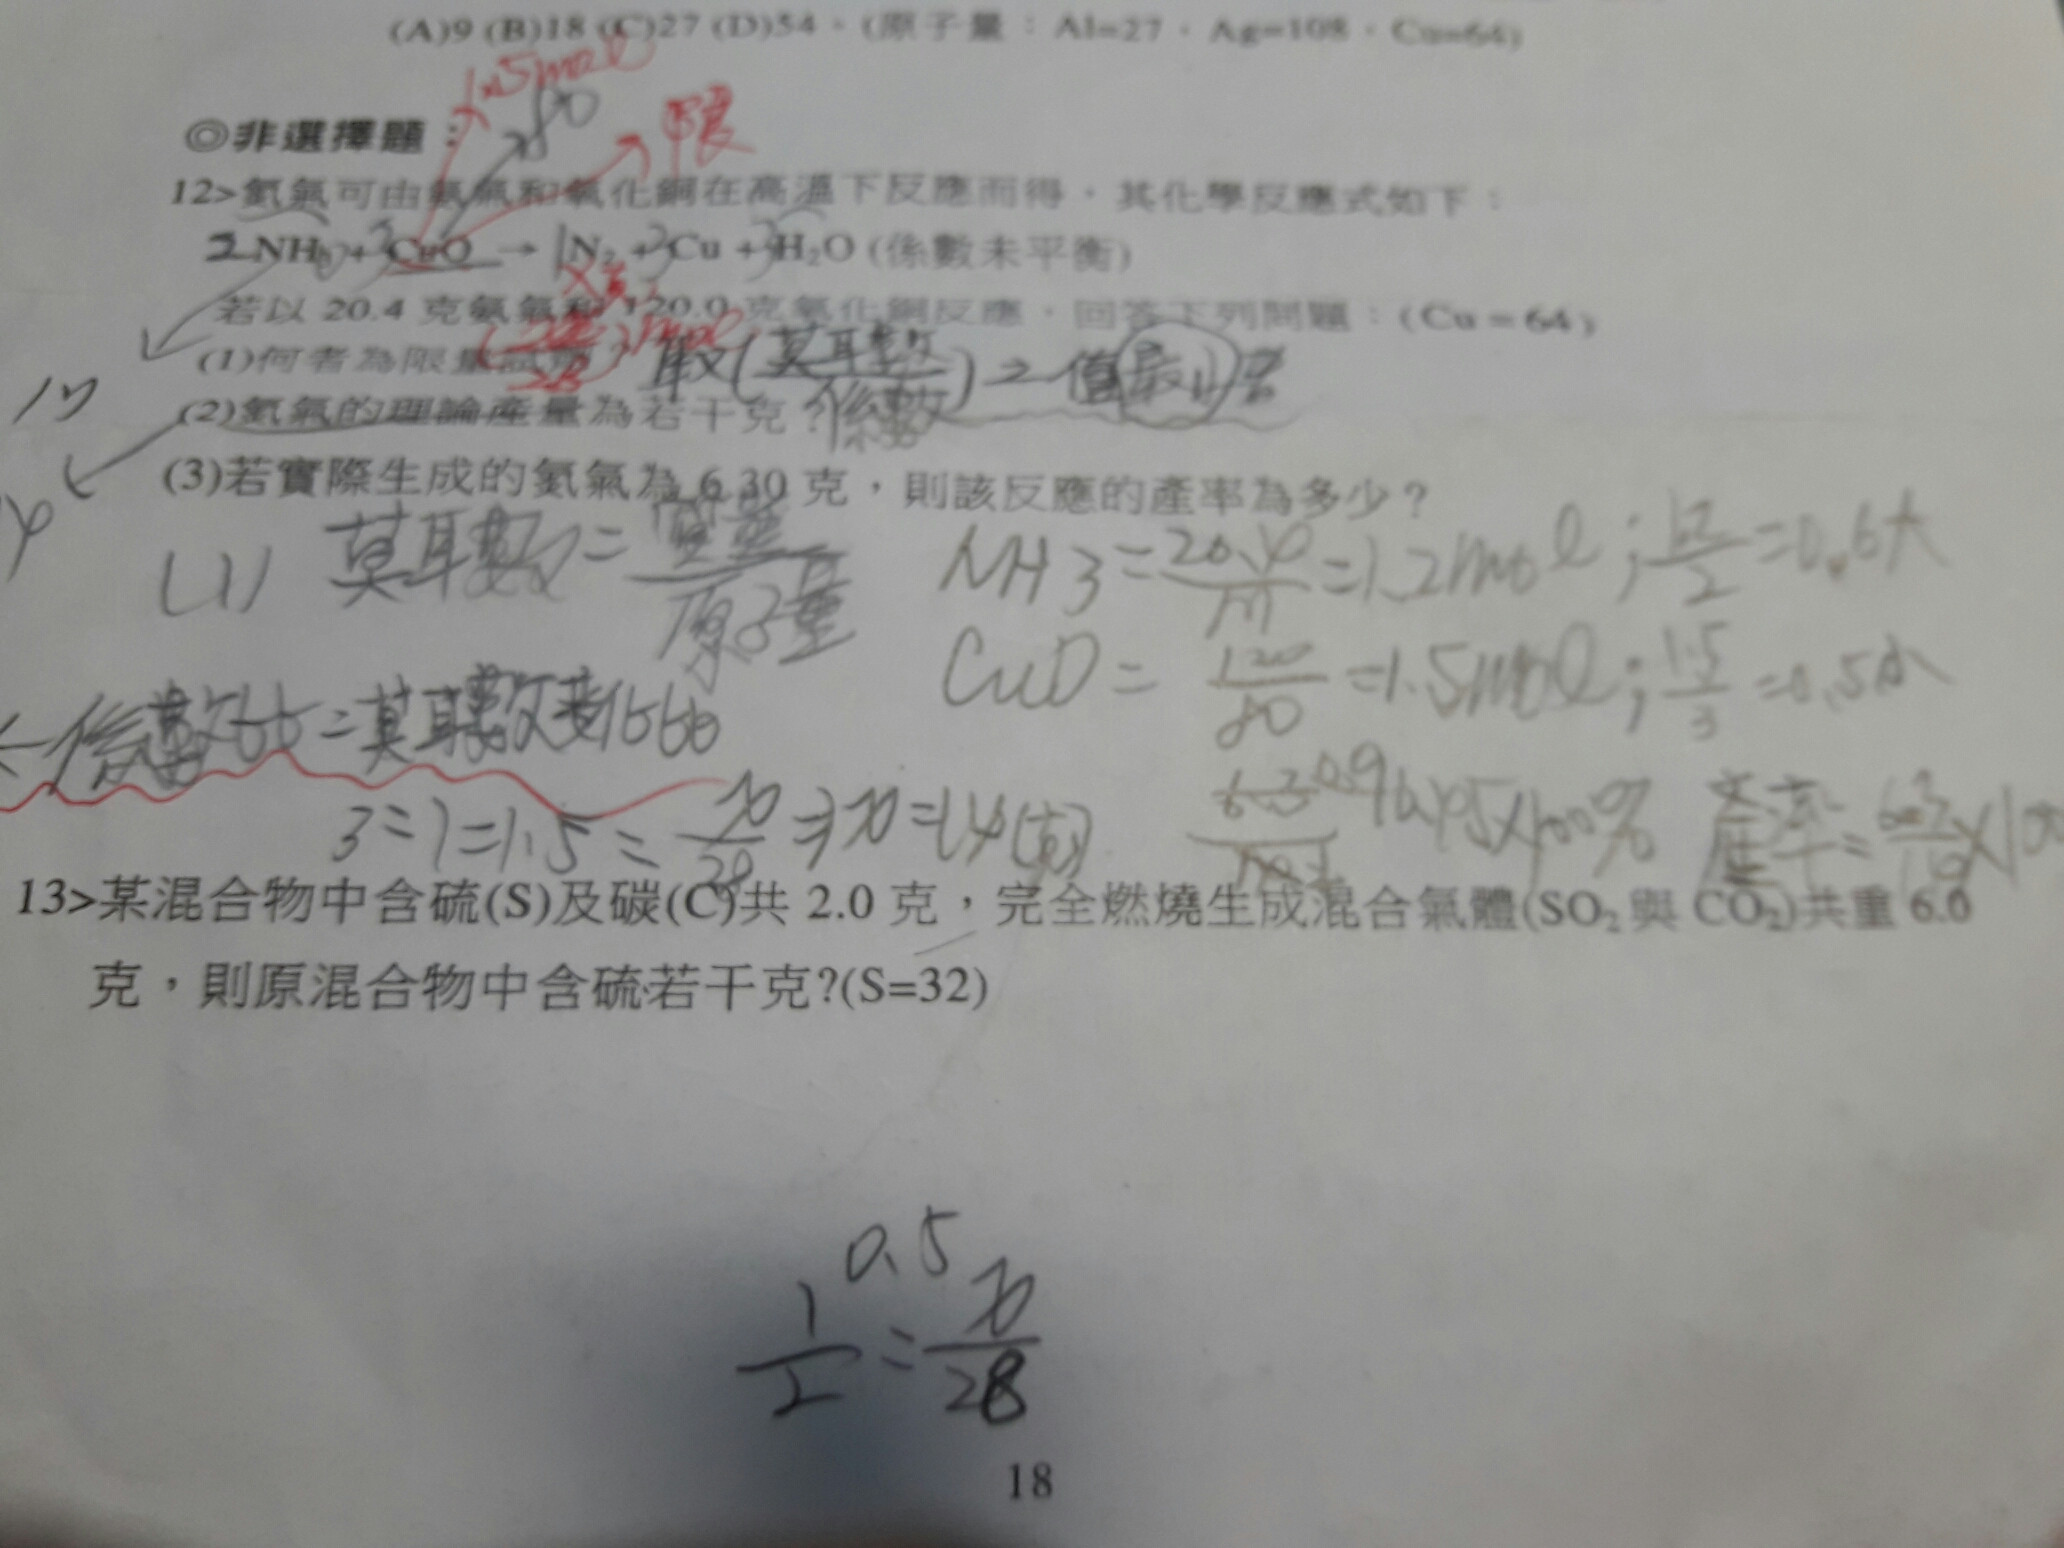 (A)9 (B)18 (C)27 (D)54。(原子量：Al=27，Ag=108，Cu=64)
1.5mol
80
限
◎非選擇題：
12>氮氣可由氨氣和氧化銅在高溫下反應而得，其化學反應式如下：
2NH₃ + 3CuO → 1N₂ + 3Cu + 3H₂O (係數未平衡)
若以 20.4 克氨氣和 120.0 克氧化銅反應，回答下列問題：(Cu = 64)
(1)何者為限量試劑
取(莫耳數/係數)之值最小者
17
(2)氮氣的理論產量為若干克？
(3)若實際生成的氮氣為 6.30 克，則該反應的產率為多少？
(1) 莫耳數=質量/原子量
NH3=20.4/17=1.2mol；1.2/2=0.6大
CuO=120/80=1.5mol；1.5/3=0.5小
係數比=莫耳數變化比
3=1=1.5=x/28⇒x=14(克)
產率=
13>某混合物中含硫(S)及碳(C)共 2.0 克，完全燃燒生成混合氣體(SO₂與 CO₂)共重 6.0
克，則原混合物中含硫若干克?(S=32)
0.5
1/2=x/28
18